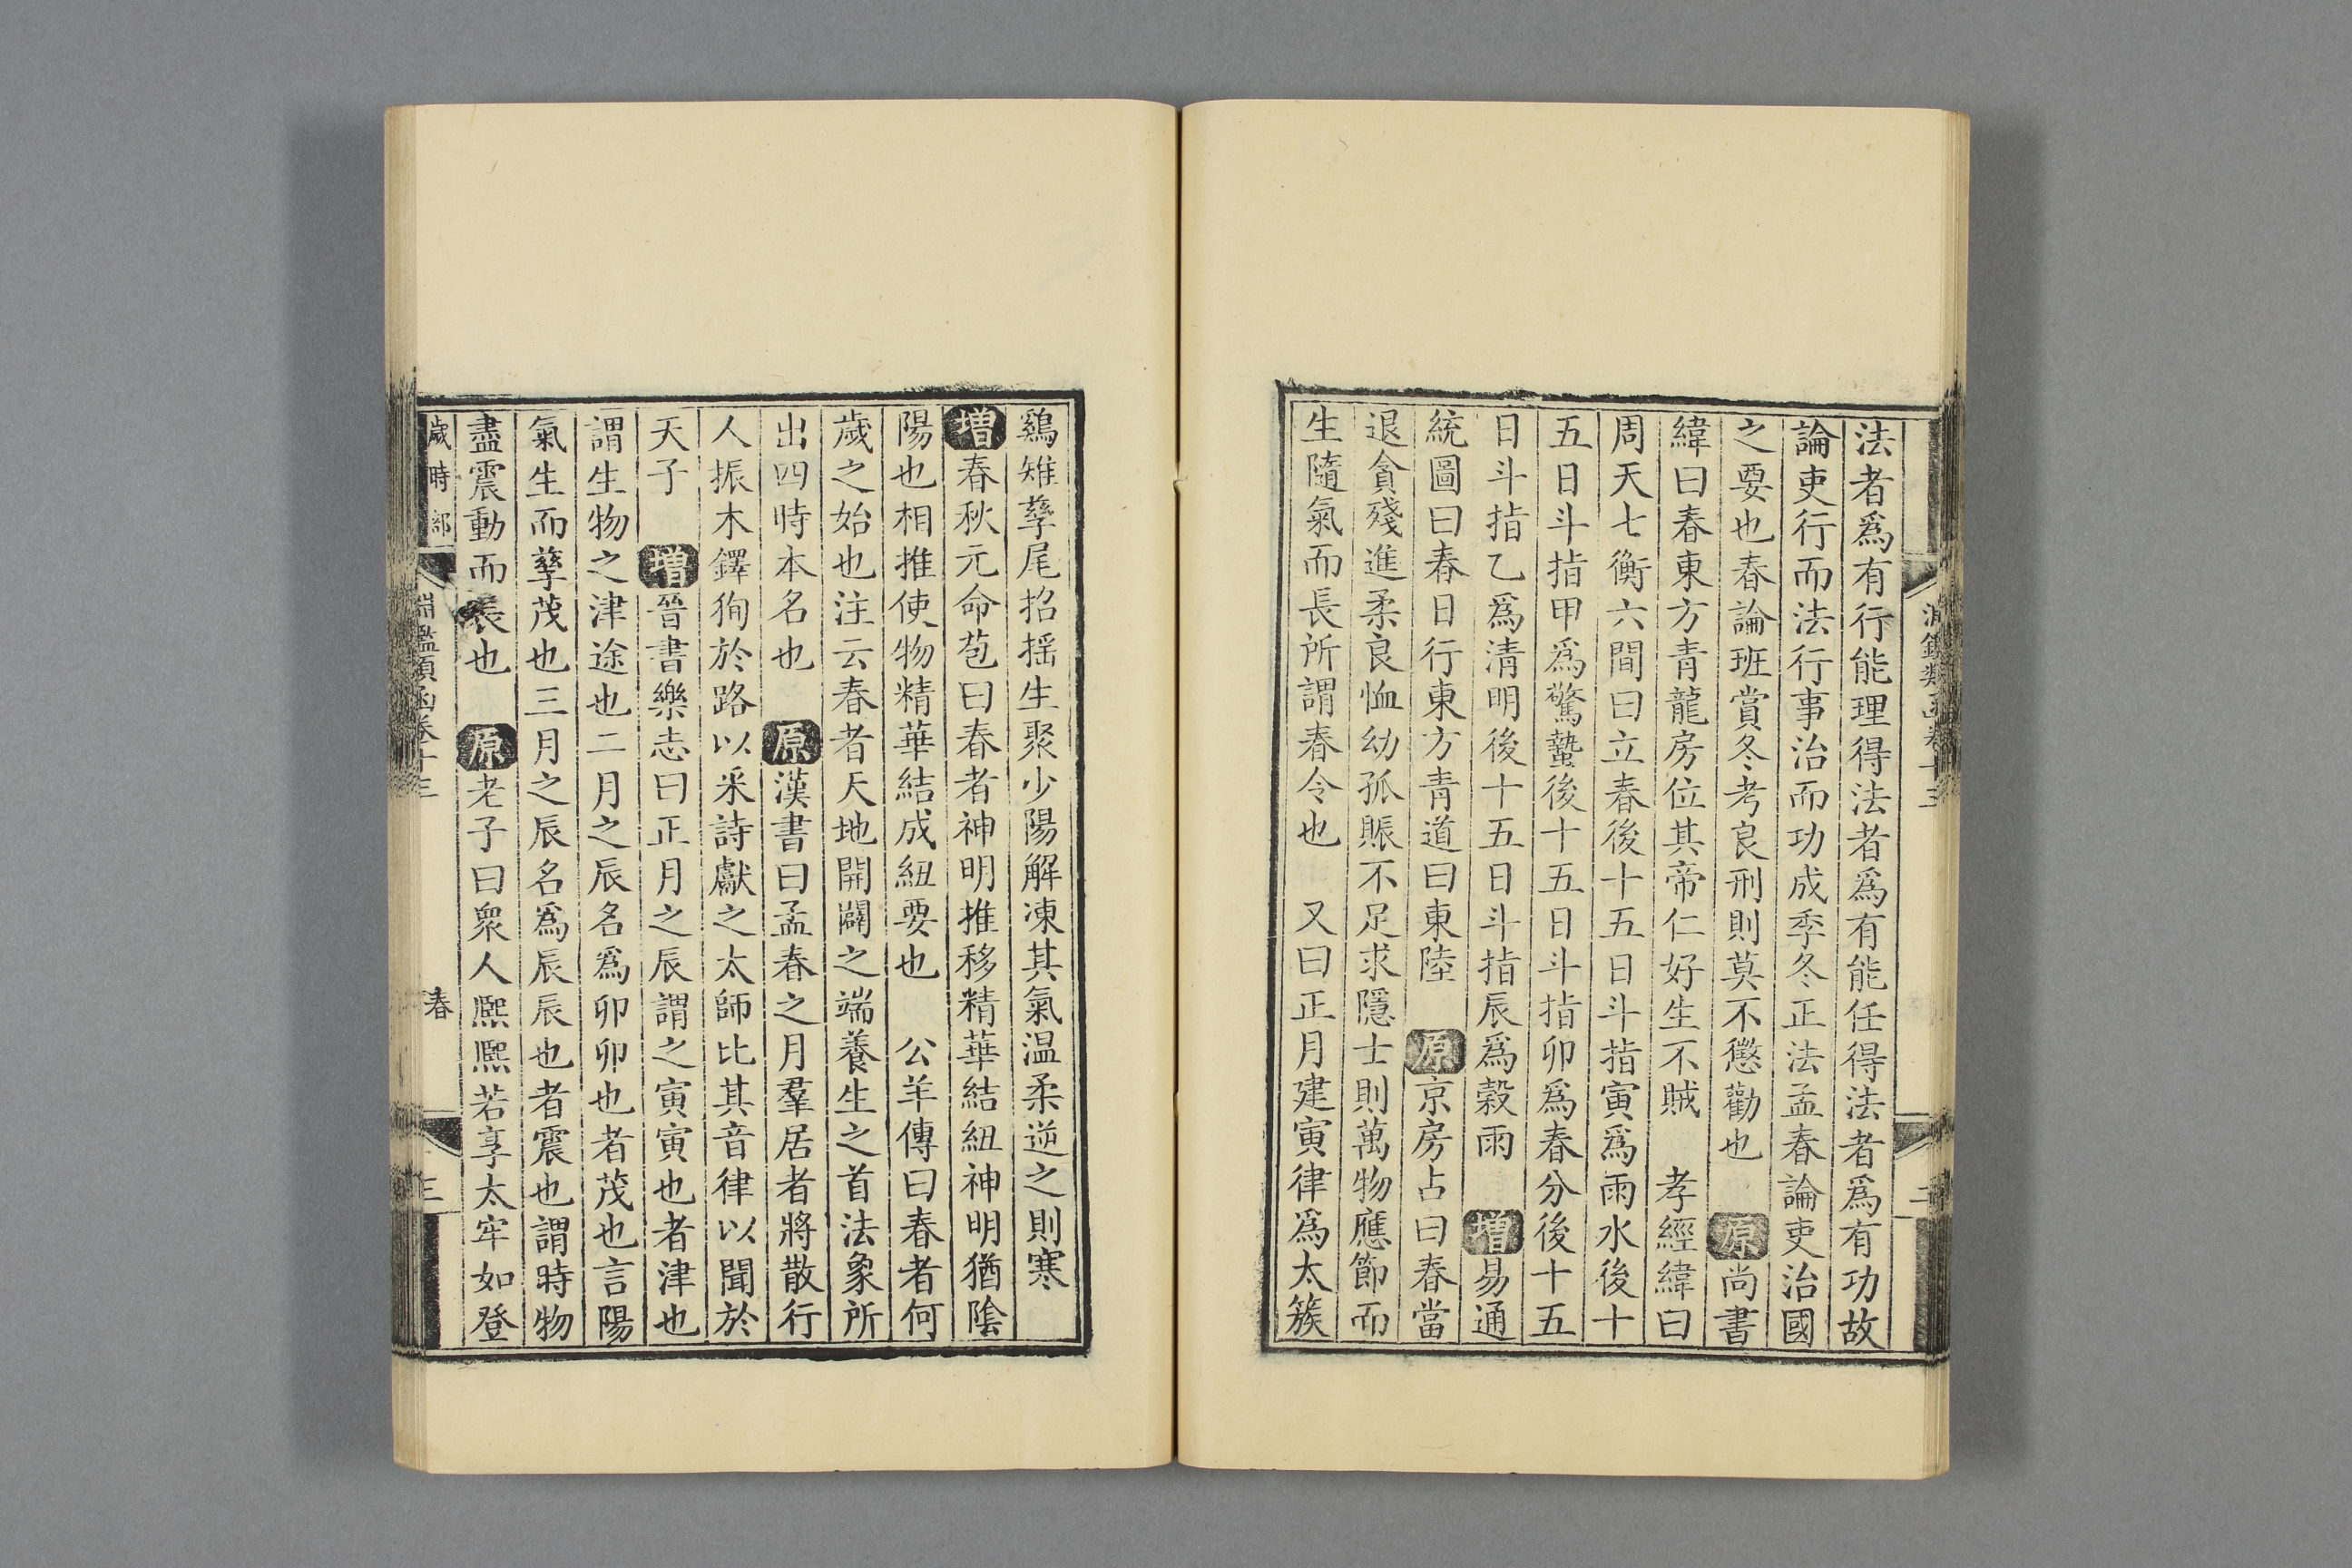 法者爲有行能理得法者爲有能任得法者爲有功故
論吏行而法行事治而功成季冬正法孟春論吏治國
之要也春論班賞冬考良刑則莫不懲勸也 原尚書
緯曰春東方青龍房位其帝仁好生不賊 孝經緯曰
周天七衡六間曰立春後十五日斗指寅爲雨水後十
五日斗指甲爲驚蟄後十五日斗指卯爲春分後十五
日斗指乙爲清明後十五日斗指辰爲穀雨 增易通
統圖曰春日行東方青道曰東陸 原京房占曰春當
退貪殘進柔良恤幼孤賑不足求隱士則萬物應節而
生隨氣而長所謂春令也 又曰正月建寅律爲太簇
二
鷄雉孳尾招揺生聚少陽解凍其氣温柔逆之則寒
增春秋元命苞曰春者神明推移精華結紐神明猶陰
陽也相推使物精華結成紐要也 公羊傳曰春者何
歲之始也注云春者天地開闢之端養生之首法象所
出四時本名也 原漢書曰孟春之月羣居者將散行
人振木鐸徇於路以采詩獻之太師比其音律以聞於
天子 增晉書樂志曰正月之辰謂之寅寅也者津也
謂生物之津途也二月之辰名爲卯卯也者茂也言陽
氣生而孳茂也三月之辰名爲辰辰也者震也謂時物
盡震動而長也 原老子曰衆人熙熙若享太牢如登
歲時部 淵鑑類函卷十三 春 三